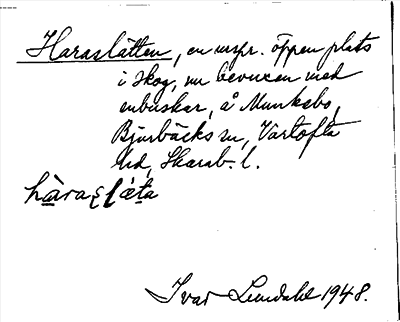 Haraslätten, en urspr. öppen plats
i skog, nu bevuxen med
enbuskar, å Munkebo,
Bjurbäcks sn, Vartofta
hd, Skarab. l.
Ivar Lundahl 1948.